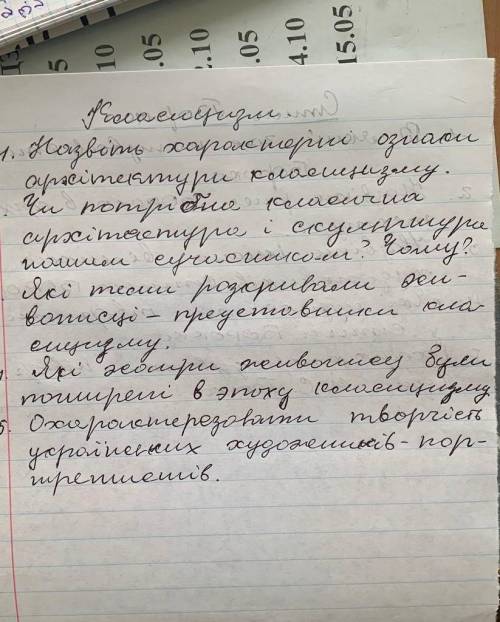 5
.05
2.10
.05
4.10
15.05
Класицизм
1. Назвіть характерні ознаки
архітектури класицизму.
Чи потрібна класична
архітектура і скульптура
нашим сучасникам? Чому?
Які теми розкривали жи-
вописці – представники кла-
сицизму.
Які жанри живопису були
поширені в эпоху класицизму
5. Охарактерезовати творчість
українських художників-пор-
третистів.